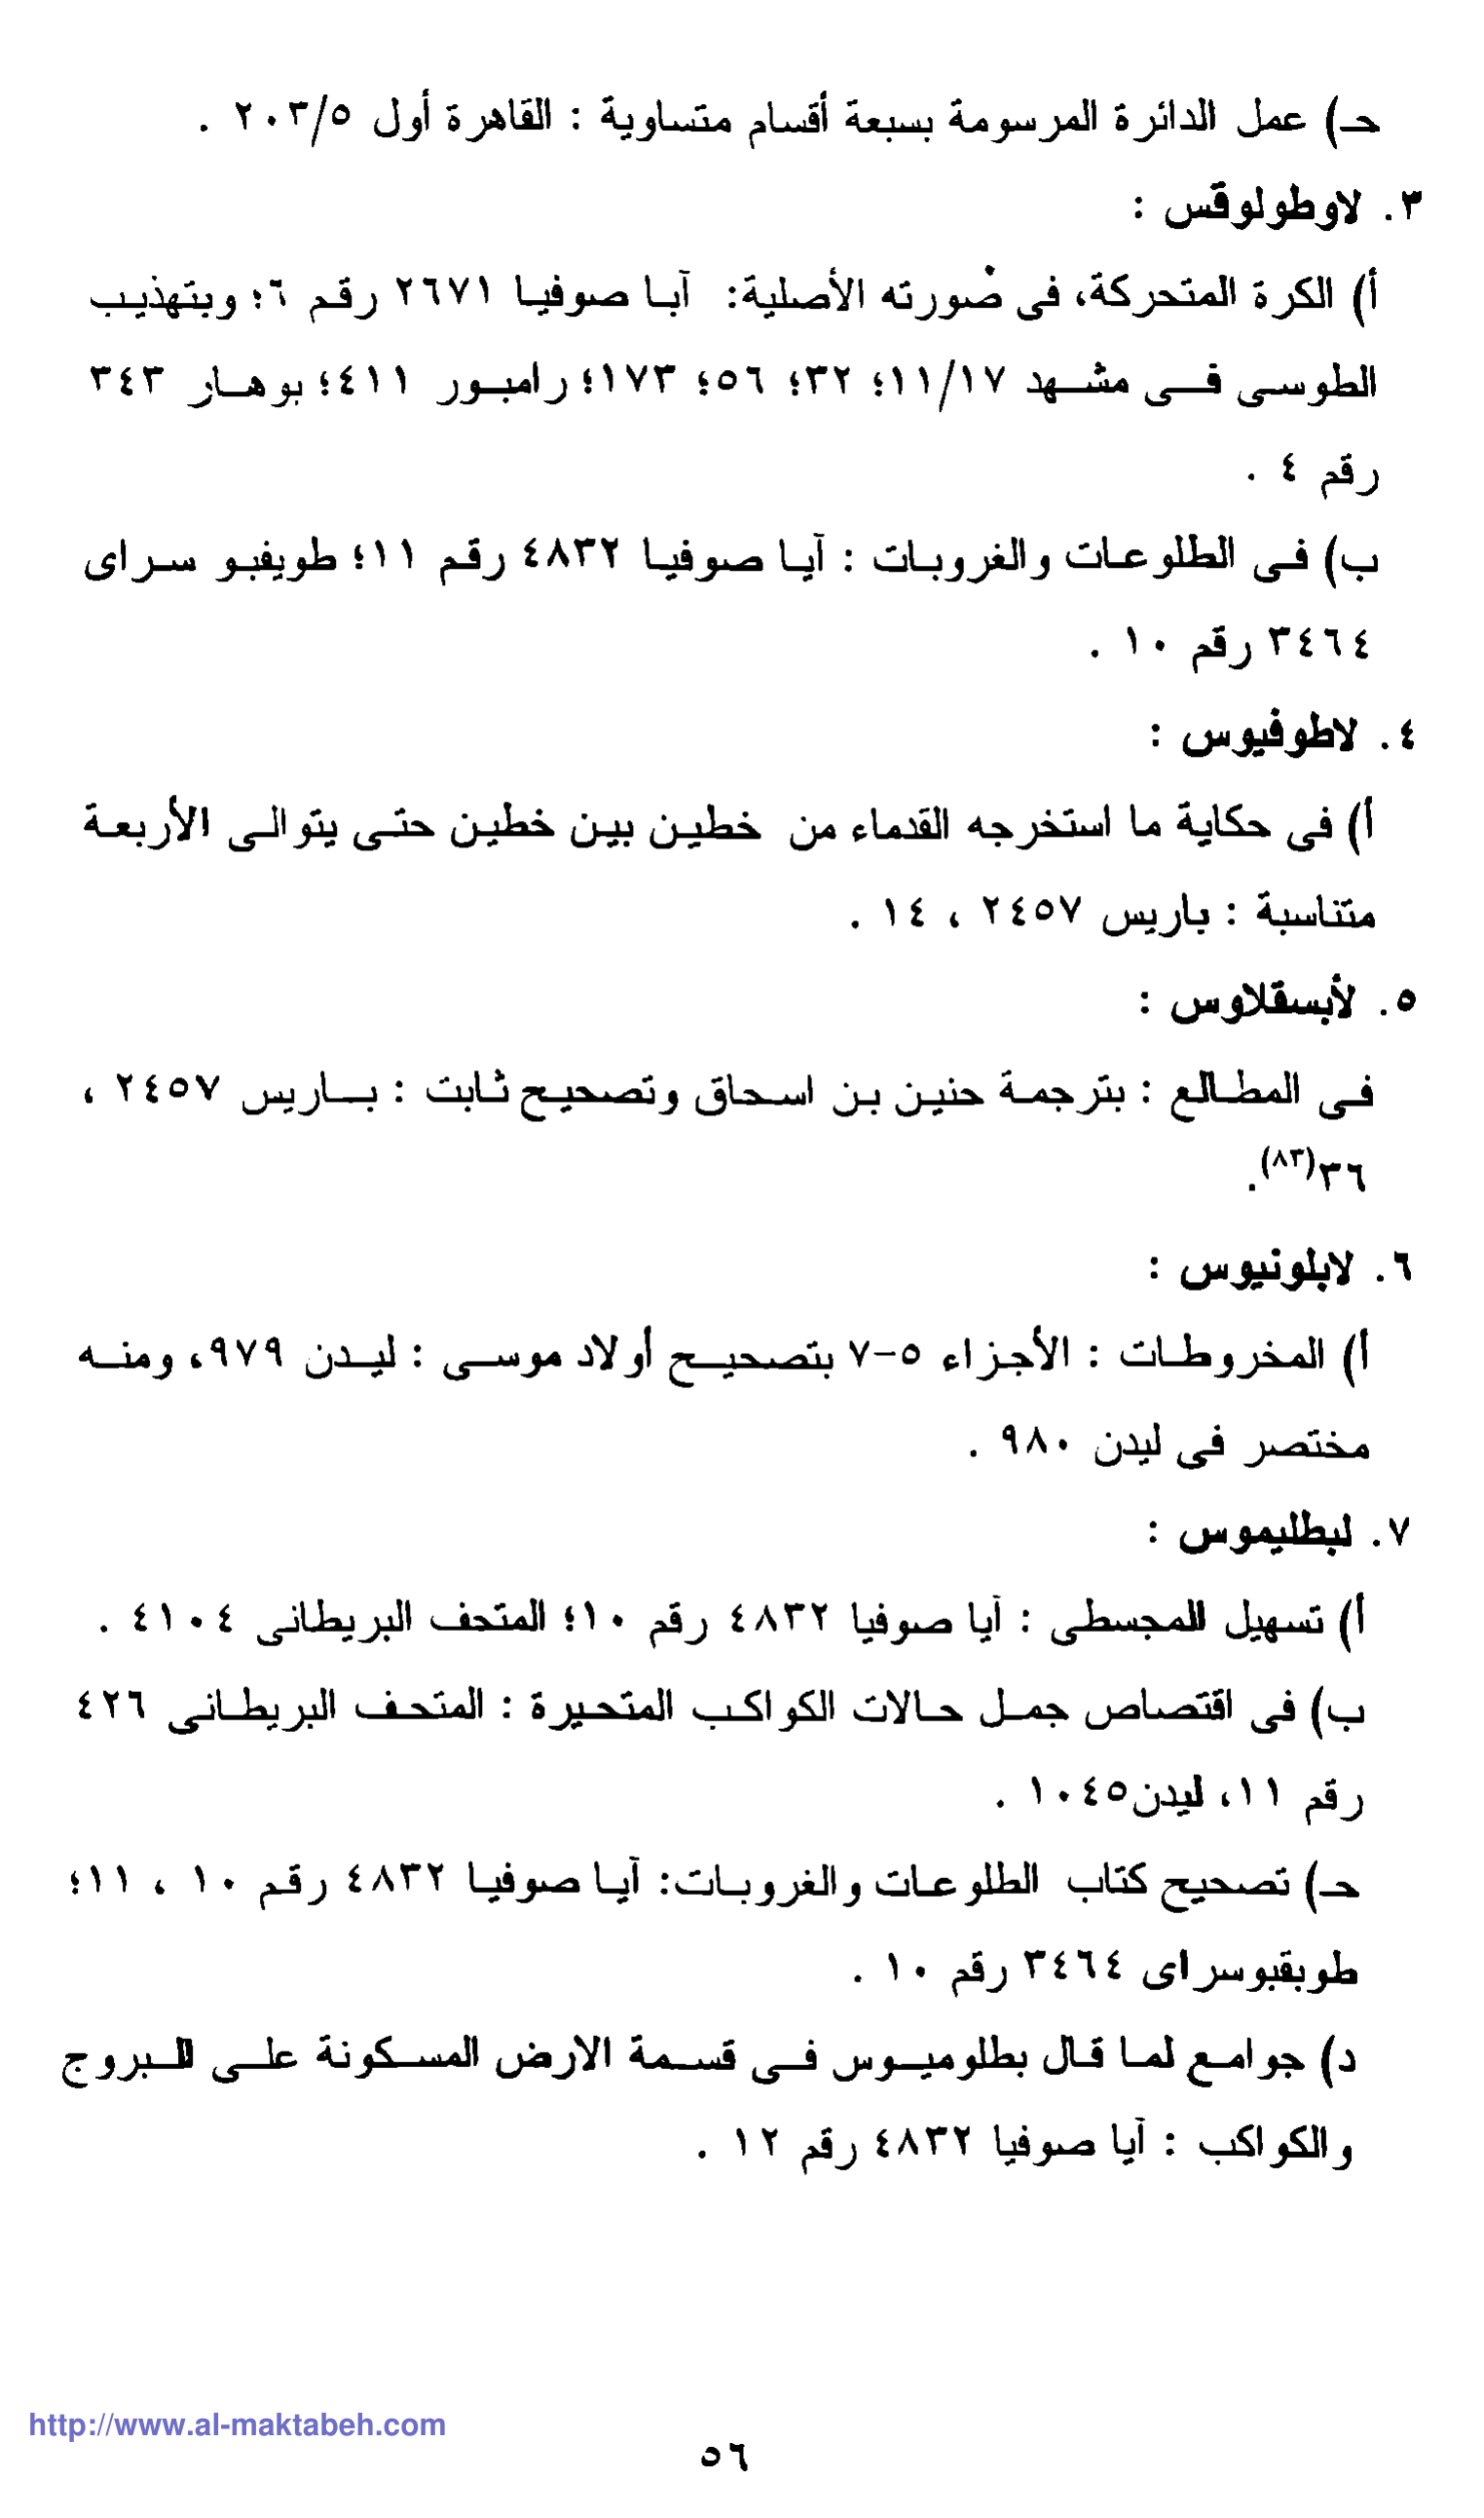 حـ) عمل الدائرة المرسومة بسبعة أقسام متساوية : القاهرة أول ٢٠٣/٥ .
٣. لاوطولوقس :
أ) الكرة المتحركة، فى صورته الأصلية: آبا صوفيا ٢٦٧١ رقم ٦؛ وبتهذيب
الطوسى فى مشهد ١١/١٧؛ ٣٢؛ ٥٦؛ ١٧٣؛ رامبور ٤١١؛ بوهار ٣٤٣
رقم ٤ .
ب) فى الطلوعات والغروبات : آيا صوفيا ٤٨٣٢ رقم ١١؛ طويفبو سراى
٣٤٦٤ رقم ١٠ .
٤. لاطوفيوس :
أ) فى حكاية ما استخرجه القدماء من خطين بين خطين حتى يتوالى الأربعة
متناسبة : باريس ٢٤٥٧ ، ١٤ .
٥. لأبسقلاوس :
فى المطالع : بترجمة حنين بن اسحاق وتصحيح ثابت : باريس ٢٤٥٧ ،
٣٦(٨٣).
٦. لابلونيوس :
أ) المخروطات : الأجزاء ٥-٧ بتصحيح أولاد موسى : ليدن ٩٧٩، ومنه
مختصر فى ليدن ٩٨٠ .
٧. لبطليموس :
أ) تسهيل المجسطى : آيا صوفيا ٤٨٣٢ رقم ١٠؛ المتحف البريطانى ٤١٠٤ .
ب) فى اقتصاص جمل حالات الكواكب المتحيرة : المتحف البريطانى ٤٢٦
رقم ١١، ليدن١٠٤٥ .
حـ) تصحيح كتاب الطلوعات والغروبات: آيا صوفيا ٤٨٣٢ رقم ١٠ ، ١١؛
طوبقبوسراى ٣٤٦٤ رقم ١٠ .
د) جوامع لما قال بطلوميوس فى قسمة الارض المسكونة على البروج
والكواكب : آيا صوفيا ٤٨٣٢ رقم ١٢ .
http://www.al-maktabeh.com
٥٦